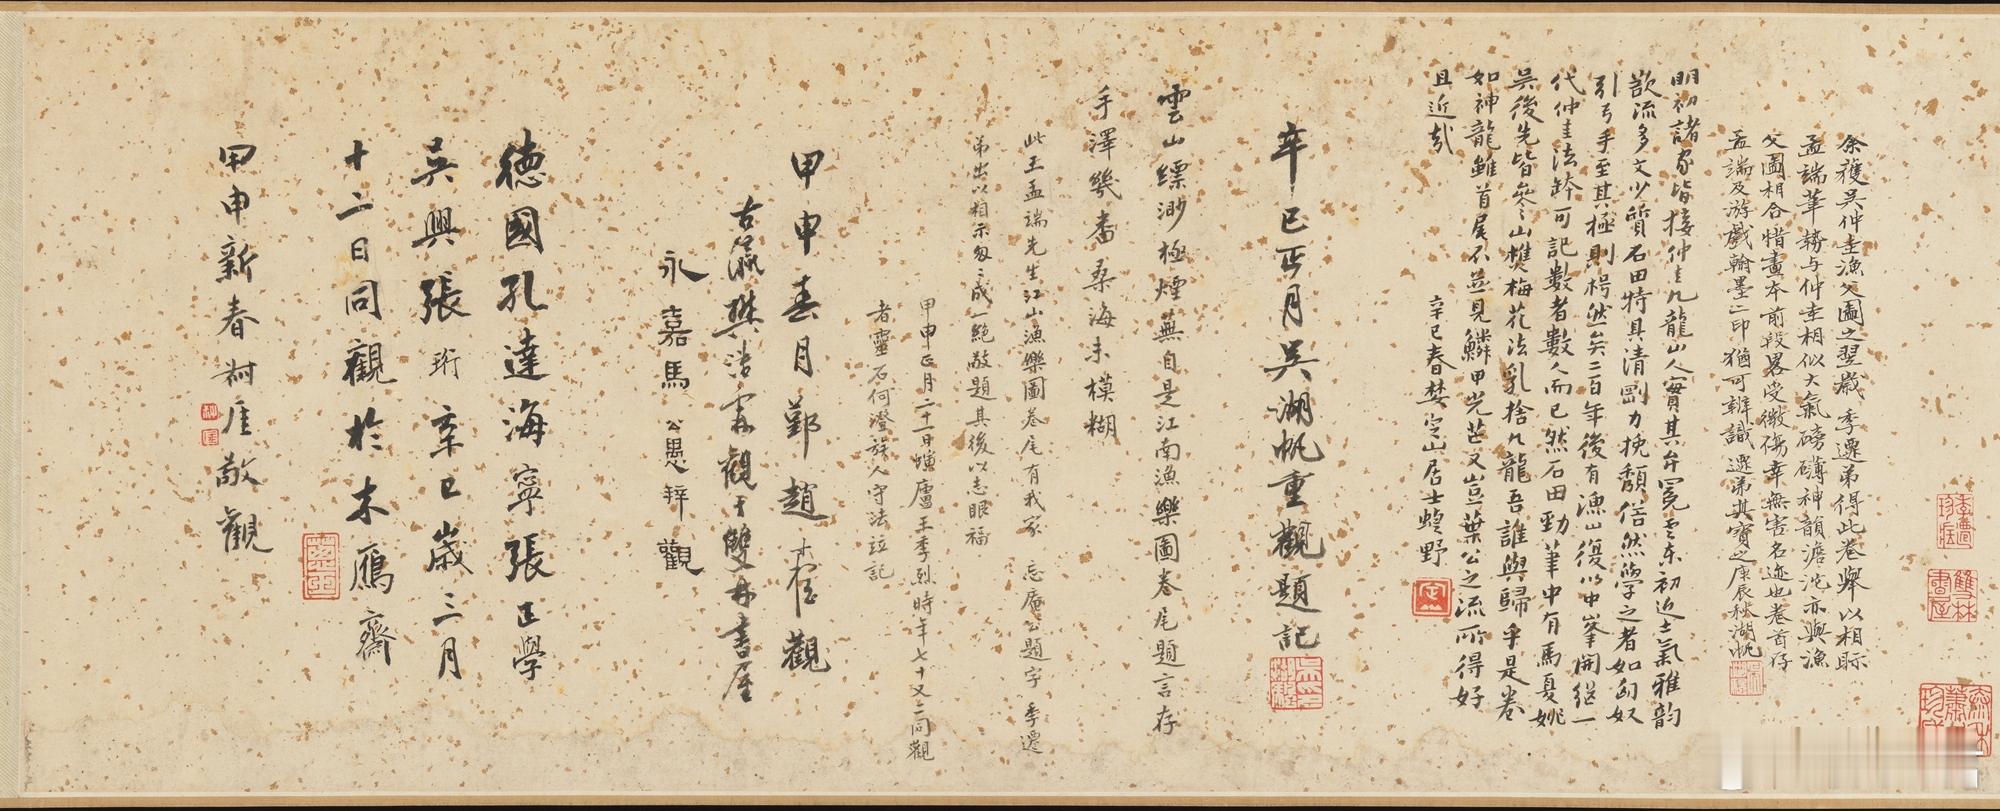 余獲吳仲圭漁父圖之翌歲季遷弟得此卷舉以相眎
孟端筆勢与仲圭相似大氣磅礴神韻澹沱亦與漁
父圖相合惜畫本前段畧受微傷幸無害名迹也卷首存
孟端及游戲翰墨二印猶可辨識遷弟其寶之庚辰秋湖帆
明初諸家皆接仲圭九龍山人實其弁冕雲東初近士氣雅韵
欲流多文少質石田特具清剛力挽頹俗然學之者如匈奴
引弓手至其極則枵然矣二百年後有漁山復以中峯開繼一
代仲圭法鉢可記數者數人而已然石田勁筆中有馬夏姚
吳後先皆參以山樵梅花法乳捨九龍吾誰與歸乎是卷
如神龍雖首尾不並見鱗甲光芒又豈葉公之流所得好
且近哉
辛巳春婪定山居士蝶野
辛巳正月吳湖帆重觀題記
雲山縹渺極煙蕪自是江南漁樂圖卷尾題言存
手澤幾番桑海未模糊
此王孟端先生江山漁樂圖卷尾有我家 忘庵公題字 季遷
弟出以相示匆匆成一絕敬題其後以志眼福
甲申正月二十日螾廬王季烈時年七十又二同觀
者靈石何澄族人守法竝記
甲申春月鄭趙 觀
古瀛樊浩霖觀于雙林書屋
永嘉馬公愚拜觀
德國孔達海寧張 學
吳興張珩辛巳歲三月
十二日同觀於木鴈齋
甲申新春 厓敬觀